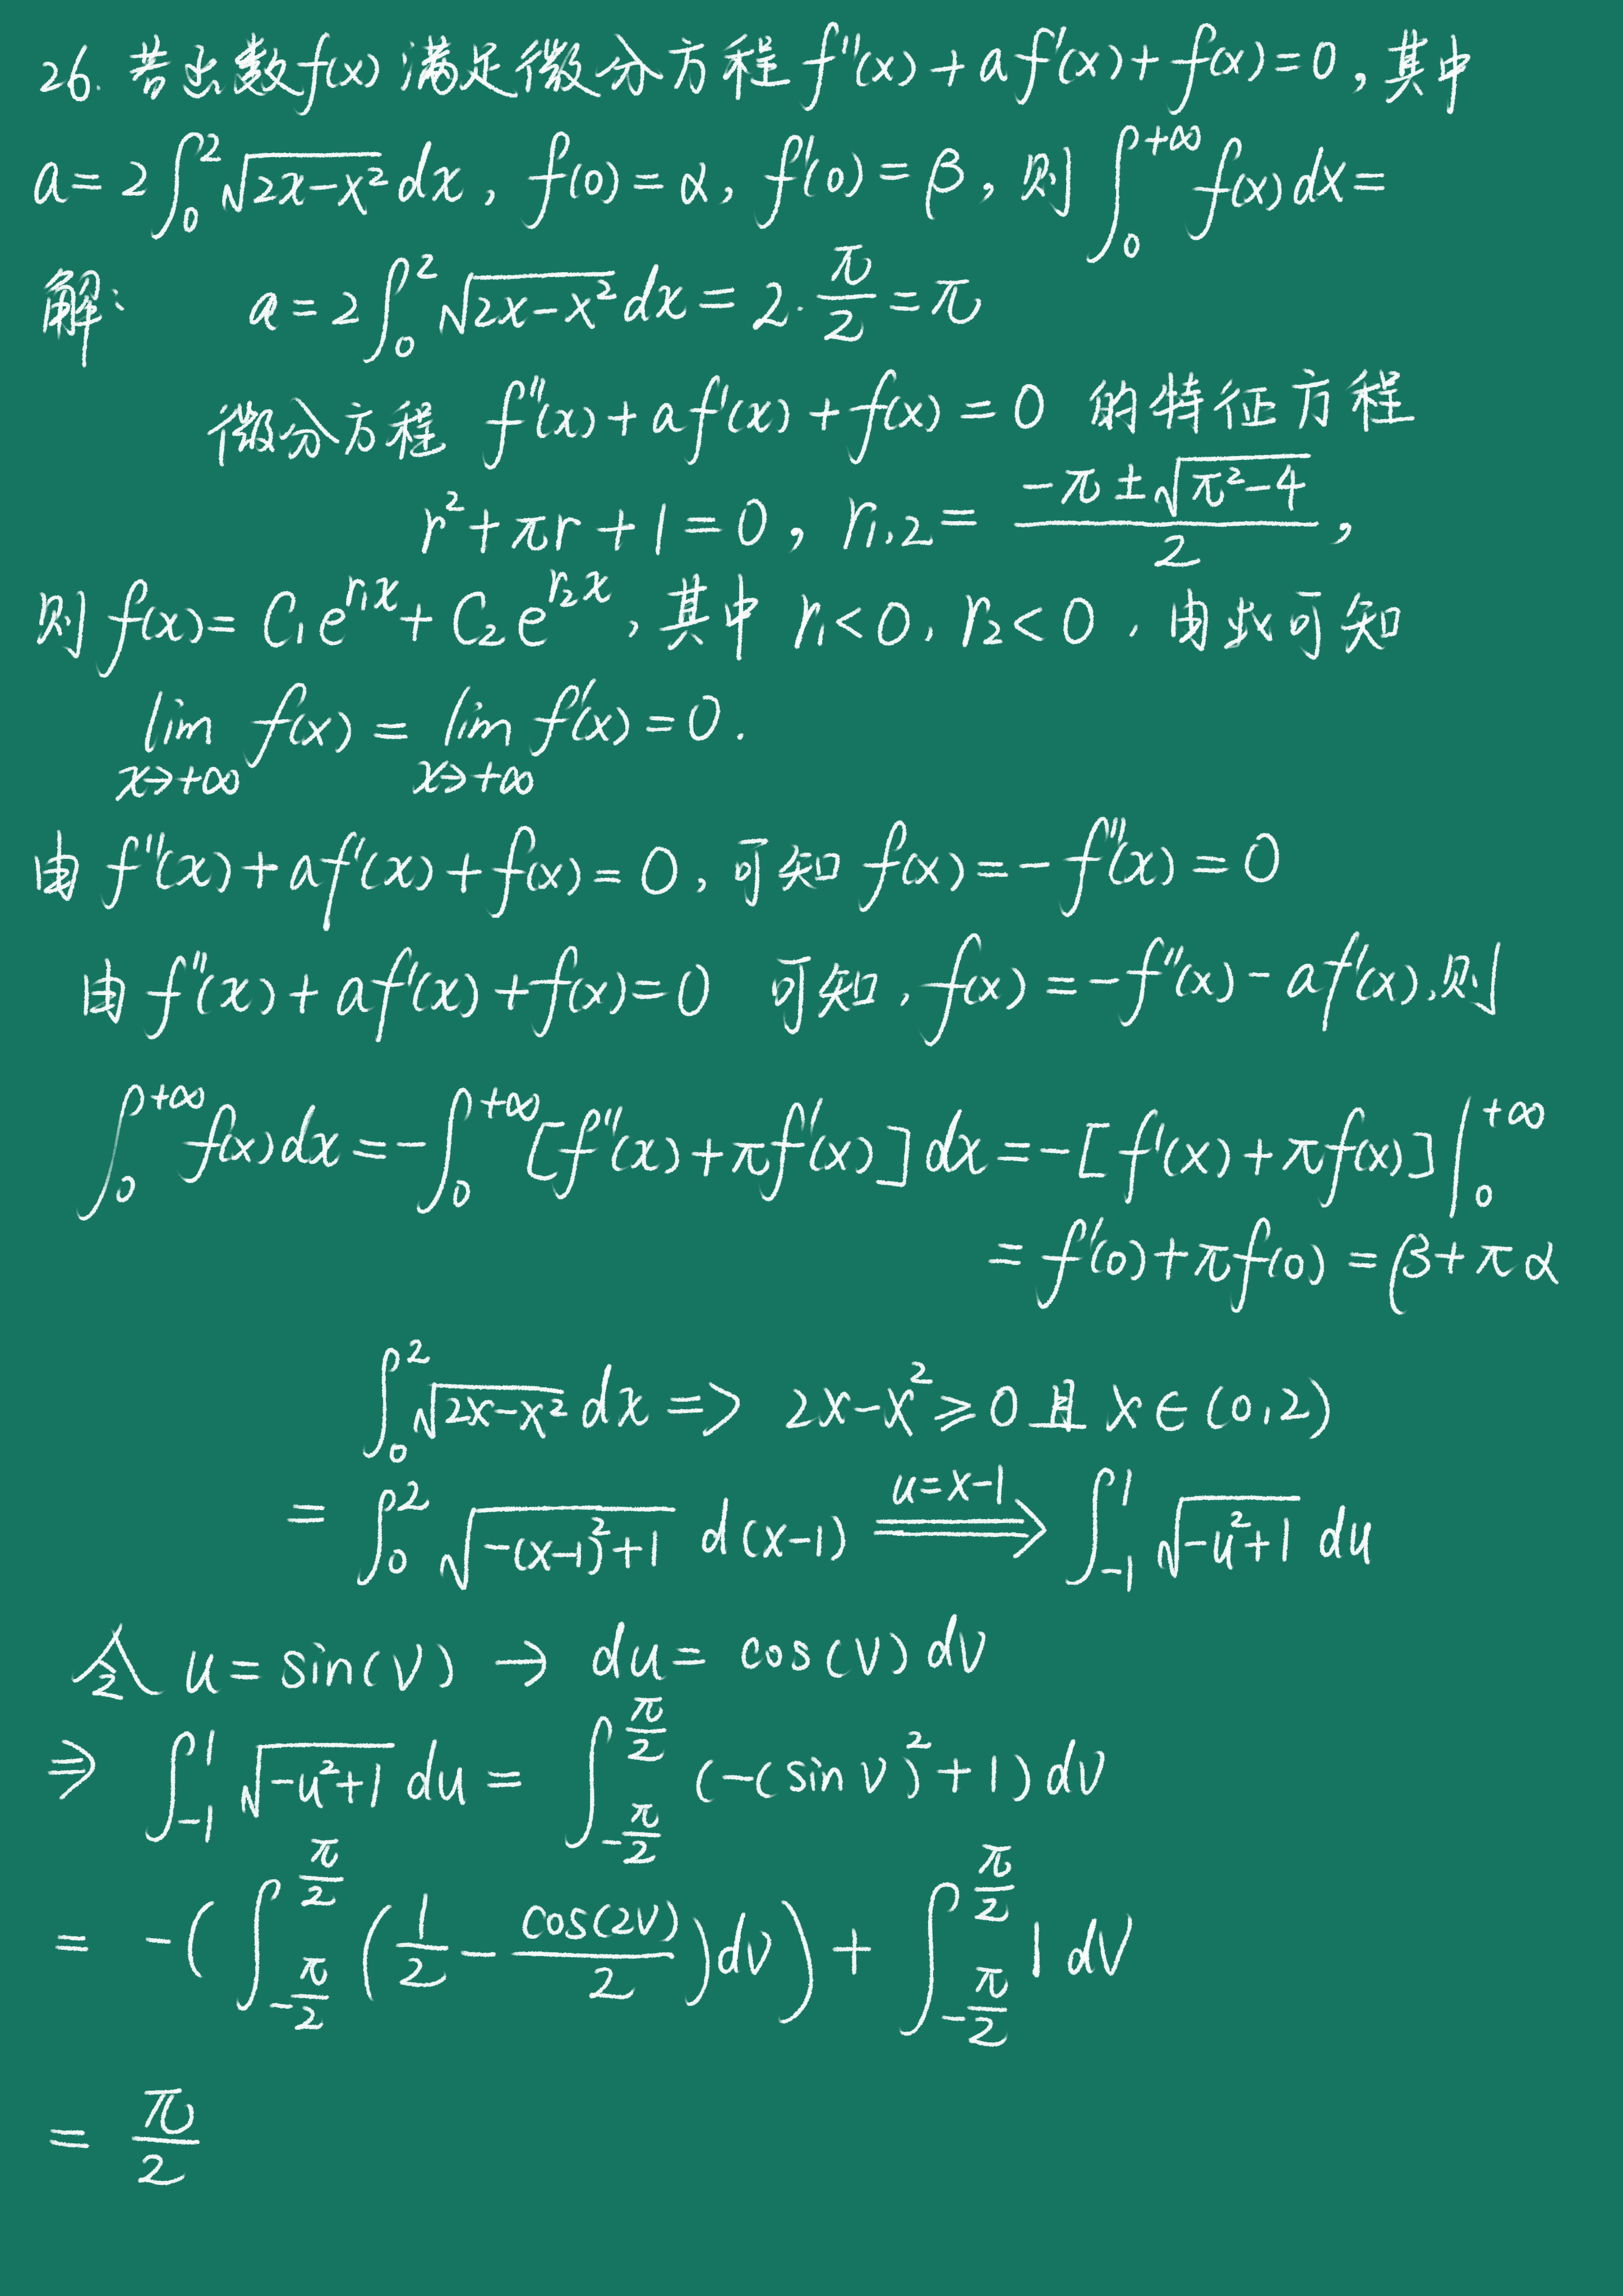 26. 若函数f(x) 满足微分方程 f''(x)+af'(x)+f(x)=0,其中
a=2∫₀²√(2x-x²)dx, f(0)=α, f'(0)=β, 则∫₀^{+∞}f(x)dx=
解: a=2∫₀²√(2x-x²)dx=2·π/2=π
微分方程 f''(x)+af'(x)+f(x)=0 的特征方程
r²+πr+1=0, r₁,₂=(-π±√(π²-4))/2,
则 f(x)=C₁e^{r₁x}+C₂e^{r₂x},其中 r₁<0, r₂<0 . 由此可知
lim_{x→+∞} f(x)=lim_{x→+∞} f'(x)=0.
由 f''(x)+af'(x)+f(x)=0,可知 f(x)=-f''(x)=0
由 f''(x)+af'(x)+f(x)=0 可知, f(x)=-f''(x)-af'(x),则
∫₀^{+∞}f(x)dx=-∫₀^{+∞}[f''(x)+πf'(x)]dx=-[f'(x)+πf(x)]|₀^{+∞}
=f'(0)+πf(0)=β+πα
∫₀²√(2x-x²)dx => 2x-x²≥0 且 x∈(0,2)
=∫₀²√(-(x-1)²+1) d(x-1) ==u=x-1==> ∫₋₁¹√(-u²+1) du
令 u=sin(v) → du=cos(v)dv
⇒ ∫₋₁¹√(-u²+1)du=∫_{-π/2}^{π/2}(-(sinv)²+1)dv
= -(∫_{-π/2}^{π/2}(1/2-cos(2v)/2)dv)+∫_{-π/2}^{π/2}1dv
= π/2